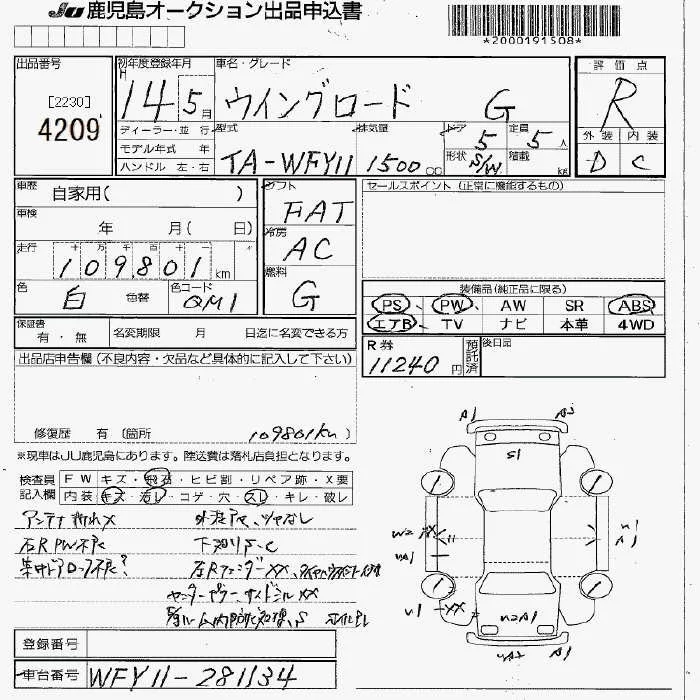 JU 鹿児島オークション出品申込書
*2000191508*
出品番号
[2230]
4209
初年度登録年月
H 14 5月
車名・グレード
ウイングロード G
評価点
R
外装 内装
D C
ディーラー・並行
モデル年式 年
ハンドル 左・右
型式
TA-WFY11
排気量
1500 cc
ドア 5
形状 S/W
定員 5人
積載 kg
車歴
自家用( )
車検
年 月( 日)
走行
十 万 千 百 十 一
109801 km
色
白 色替
色コード
QM1
シフト
FAT
冷房
AC
燃料
G
セールスポイント (正常に機能するもの)
装備品(純正品に限る)
PS PW AW SR ABS
エアB TV ナビ 本革 4WD
保証書
有・無
名変期限 月 日迄に名変できる方
R券
11240円
預託済
後日品
出品店申告欄(不良内容・欠品など具体的に記入して下さい)
修復歴 有 (箇所 109801km)
※現車はJU鹿児島にあります。陸送費は落札店負担となります。
検査員記入欄
FW キズ・飛石・ヒビ割・リペア跡・X要
内装 キズ・汚レ・コゲ・穴・スレ・キレ・破レ
アンテナ折れX
右R PW不良
集中ドアロック不良?
下廻りS・C
A1 A3
S1
W2 XX
U1
A1
U1 XX
A1
登録番号
車台番号 WFY11-281134